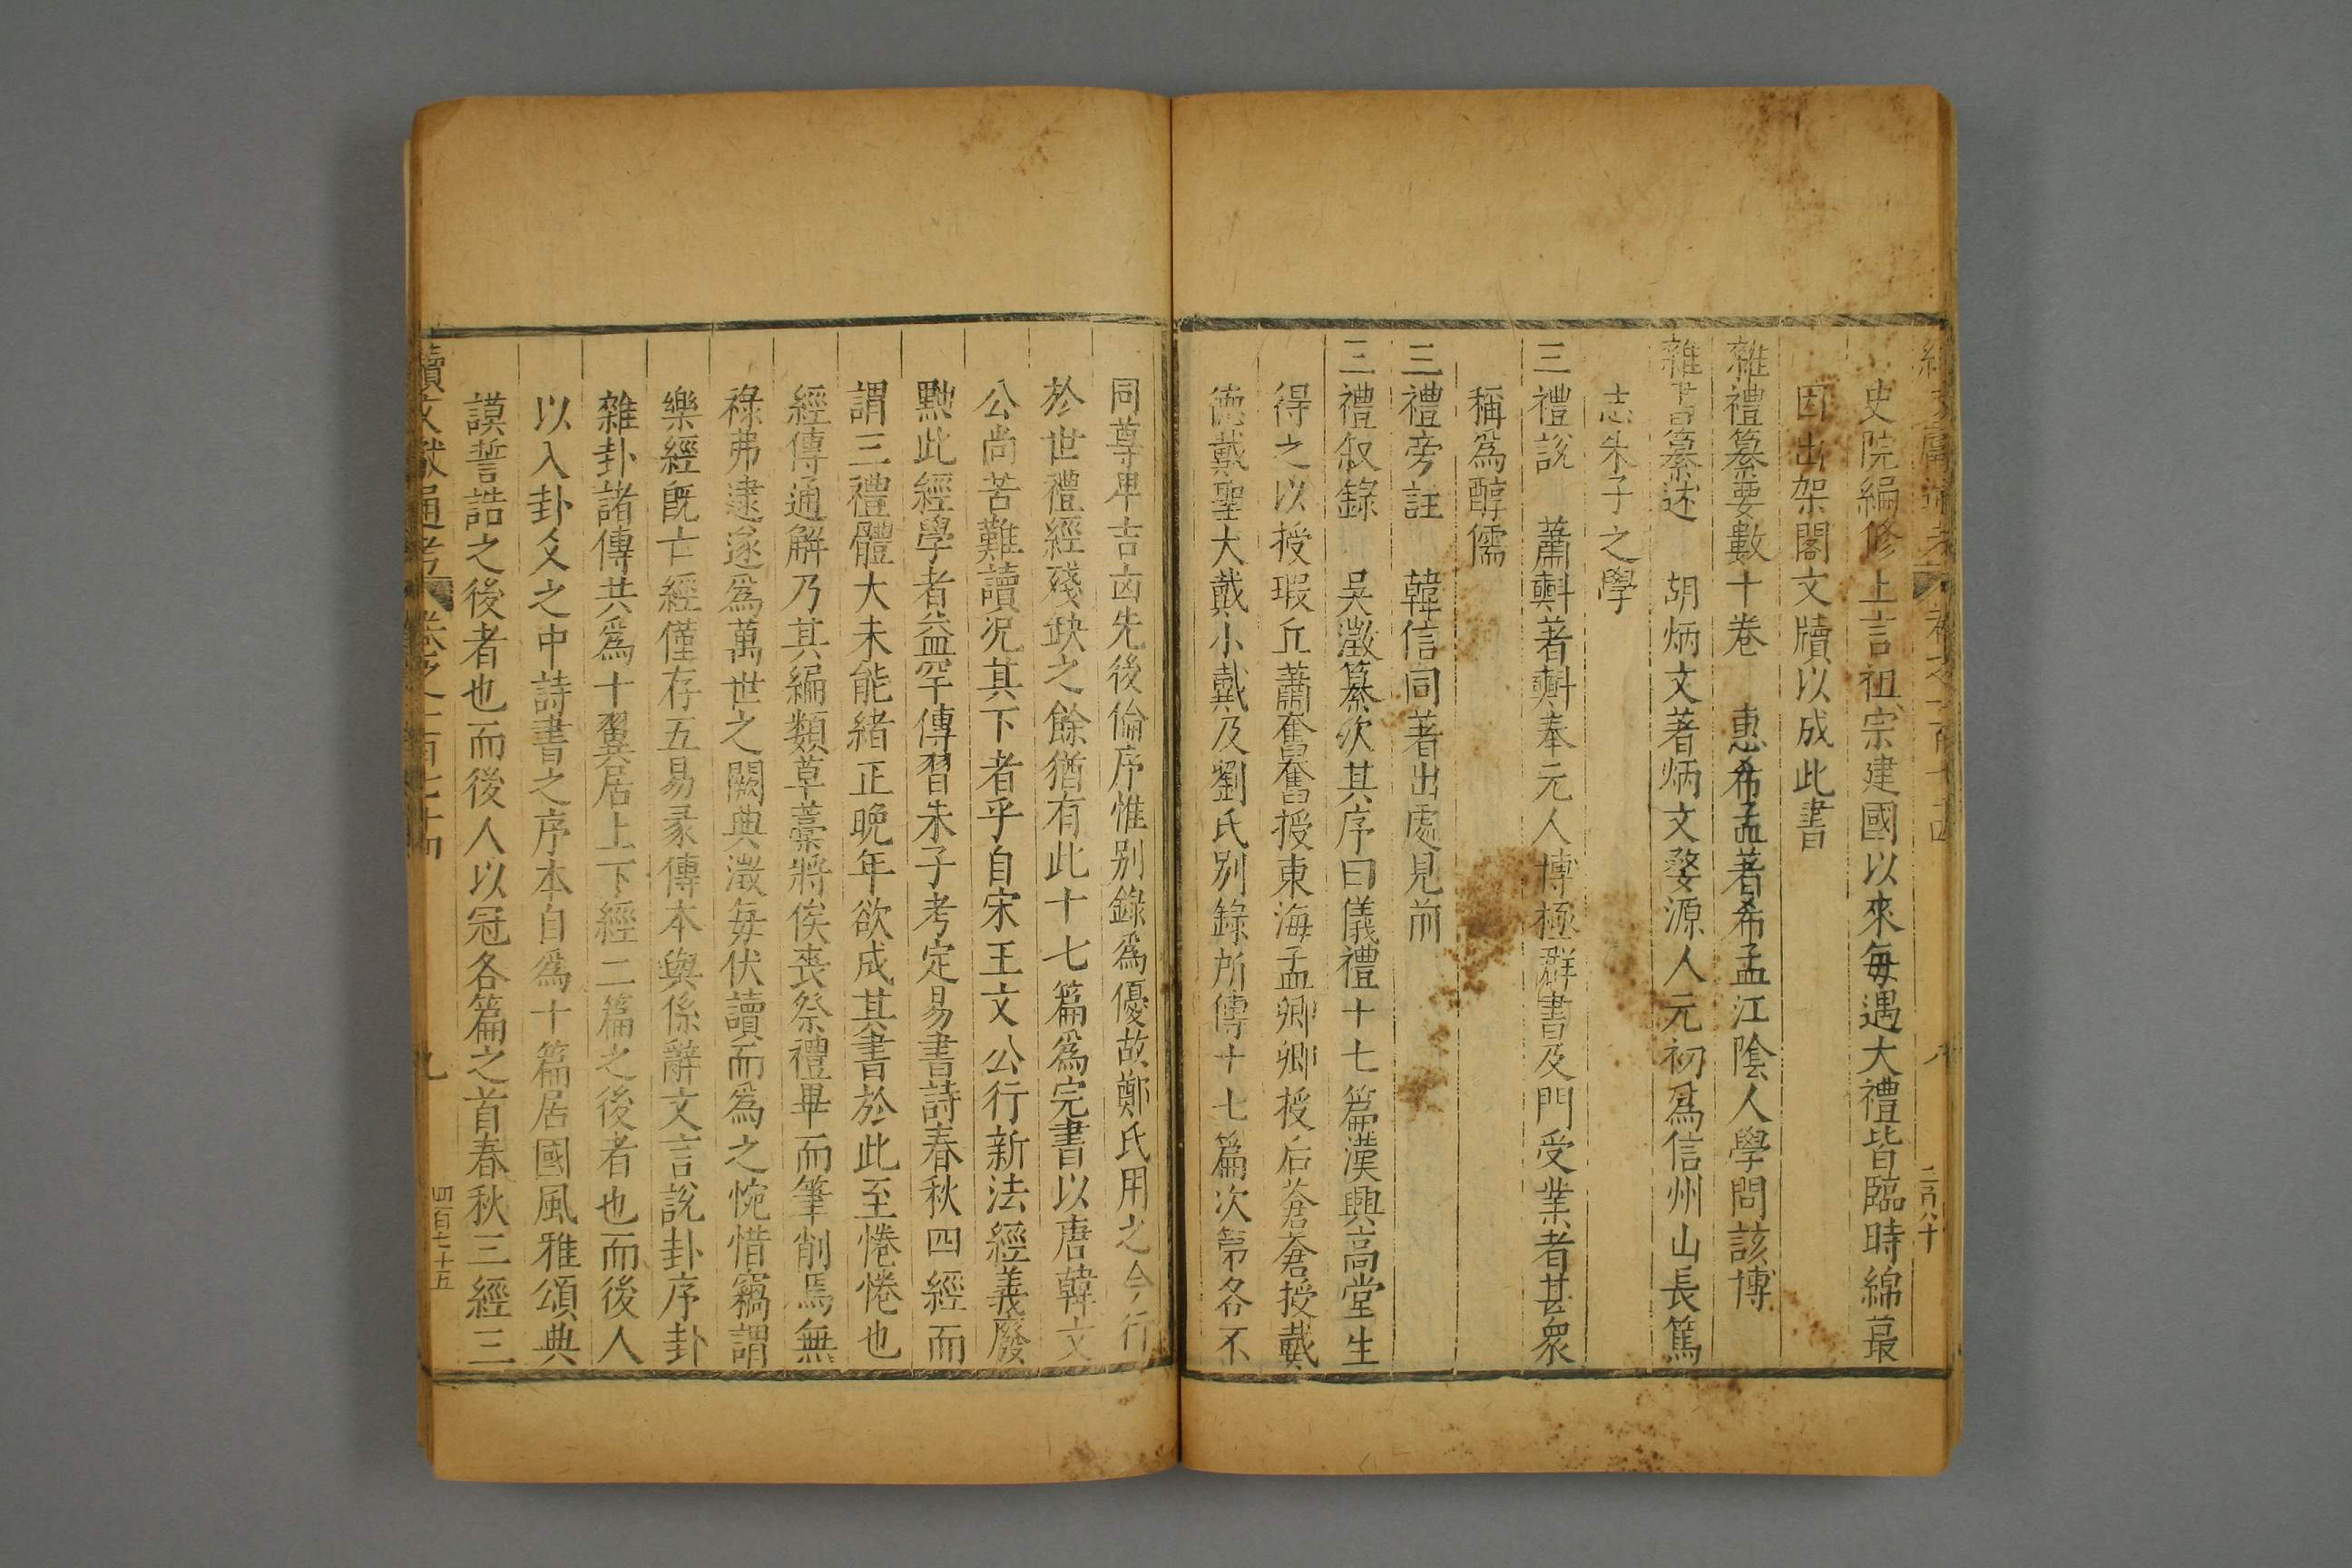 史院編修上言祖宗建國以來每遇大禮皆臨時綿蕞
因出架閣文牘以成此書
雜禮纂要數十卷　惠希孟著希孟江陰人學問該博
雜書纂述　胡炳文著炳文婺源人元初爲信州山長篤
志朱子之學
三禮說　蕭𣂏著𣂏奉元人博極群書及門受業者甚衆
稱爲醇儒
三禮旁註　韓信同著出處見前
三禮叙錄　吳澂纂次其序曰儀禮十七篇漢興高堂生
得之以授瑕丘蕭奮奮授東海孟卿卿授后蒼蒼授戴
德戴聖大戴小戴及劉氏別錄所傳十七篇次第各不
同尊卑吉凶先後倫序惟别錄爲優故鄭氏用之今行
於世禮經殘缺之餘猶有此十七篇爲完書以唐韓文
公尚苦難讀况其下者乎自宋王文公行新法經義廢
黜此經學者益罕傳習朱子考定易書詩春秋四經而
謂三禮體大未能緒正晚年欲成其書於此至惓惓也
經傳通解乃其編類草藁將俟喪祭禮畢而筆削焉無
祿弗逮遂爲萬世之闕典澂每伏讀而爲之惋惜竊謂
樂經旣亡經僅存五易彖傳本與係辭文言說卦序卦
雜卦諸傳共爲十翼居上下經二篇之後者也而後人
以入卦爻之中詩書之序本自爲十篇居國風雅頌典
謨誓誥之後者也而後人以冠各篇之首春秋三經三
續文獻通考　卷之一百七十四　九　四百七十五